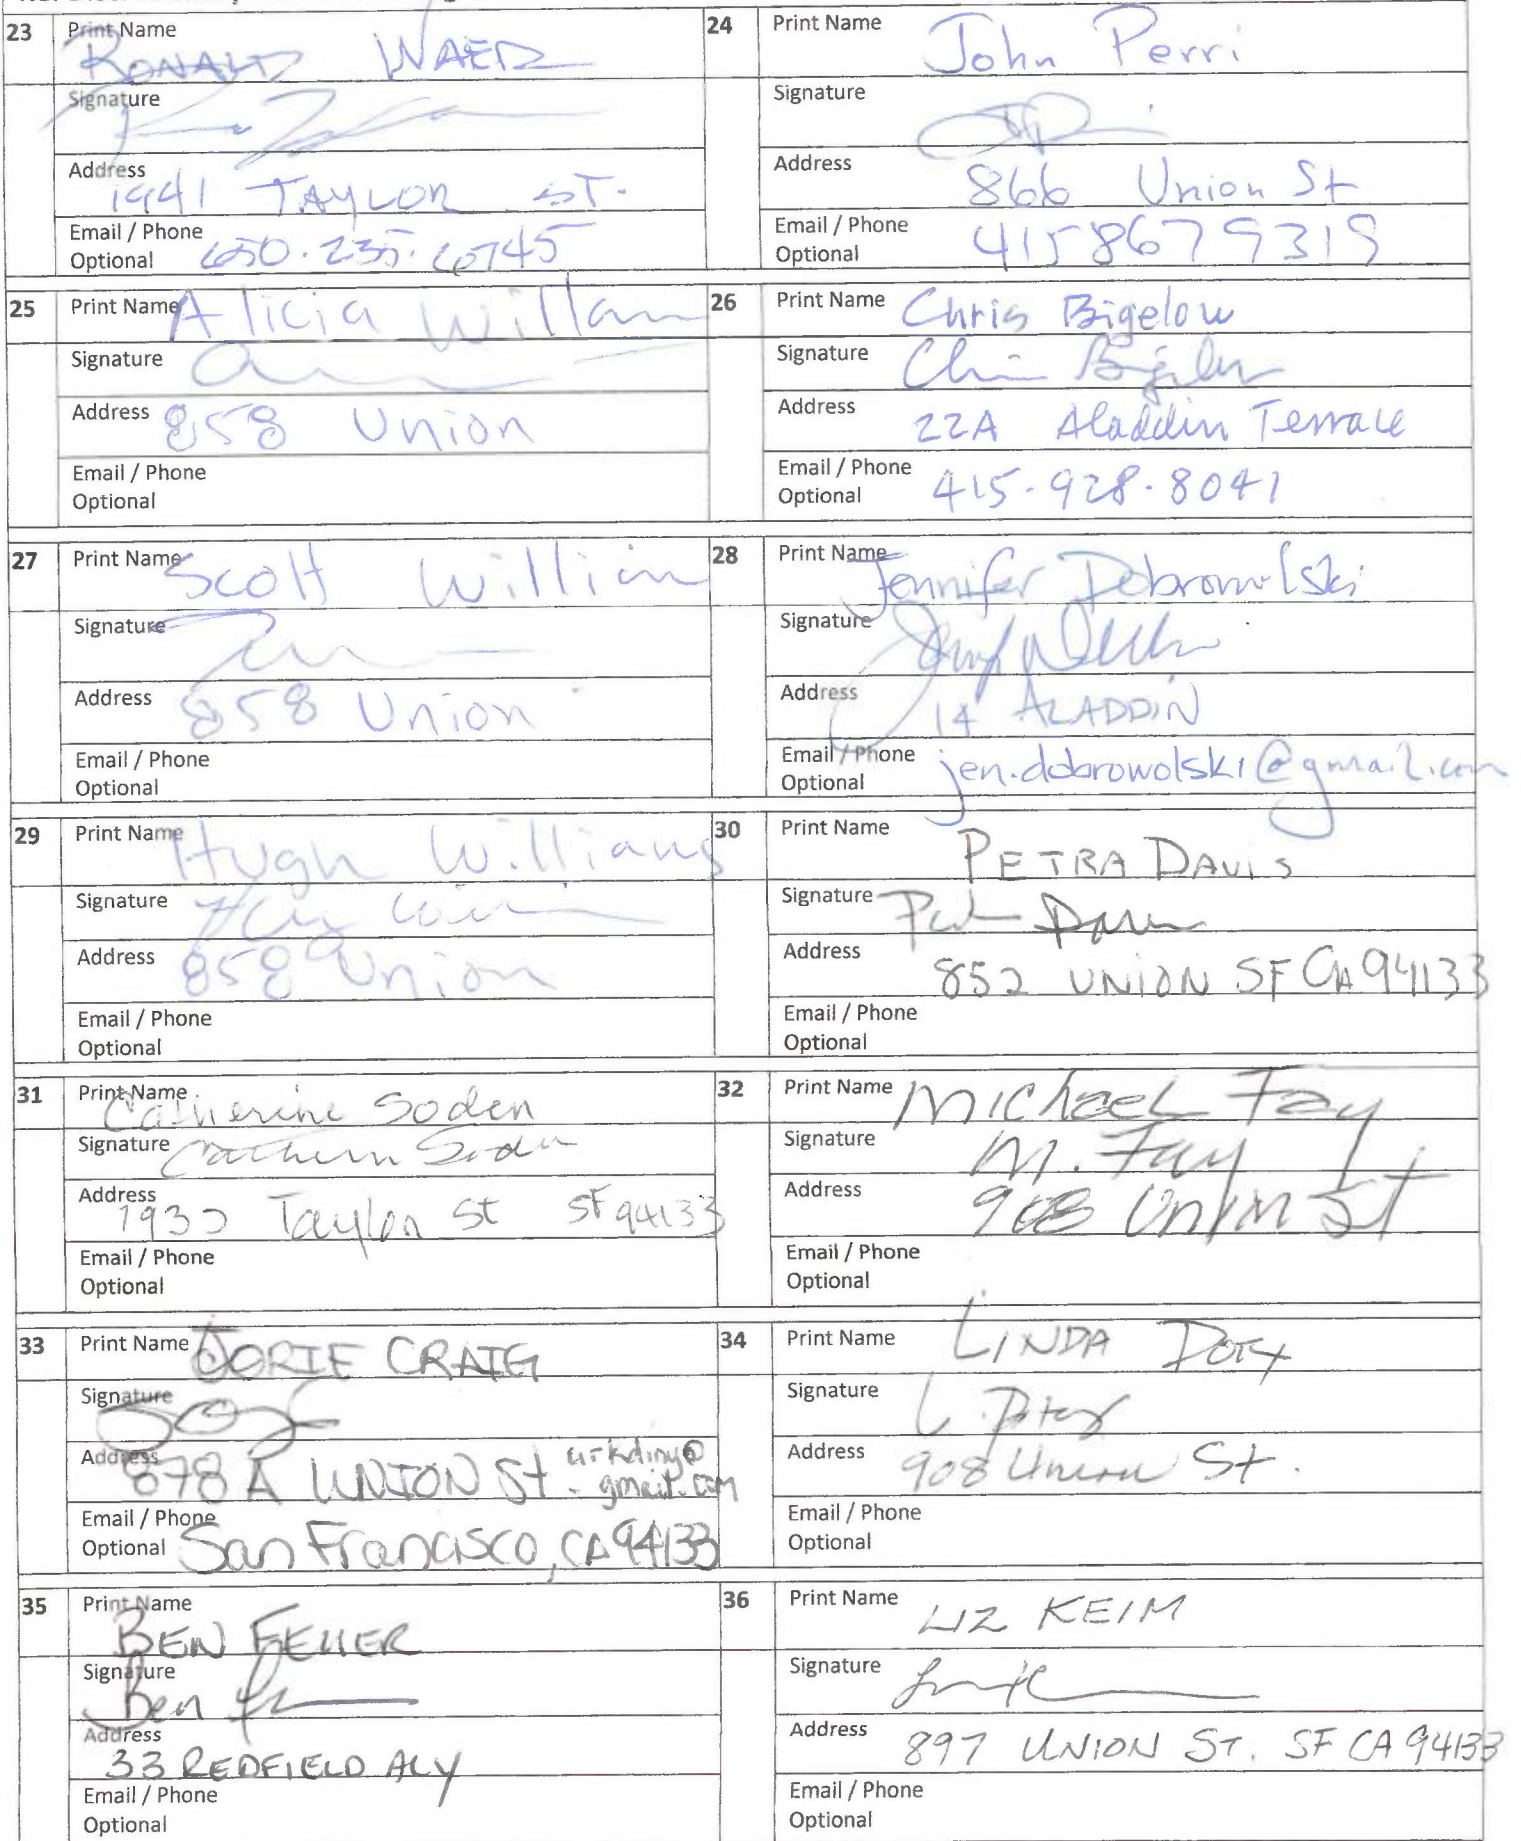 23 Print Name RONALD
Signature
Address 1941 TAYLOR ST.
Email / Phone 650.235.6745
Optional
24 Print Name John Perri
Signature
Address 866 Union St
Email / Phone 415 867 9319
Optional
25 Print Name Alicia
Signature
Address 858 Union
Email / Phone
Optional
26 Print Name Chris Bigelow
Signature Chris Bigelow
Address 22A Aladdin Terrace
Email / Phone 415-928-8041
Optional
27 Print Name Scott
Signature
Address 858 Union
Email / Phone
Optional
28 Print Name Jennifer Dobrowolski
Signature
Address 14 ALADDIN
Email / Phone jen.dobrowolski@gmail.com
Optional
29 Print Name Hugh Williams
Signature
Address 858 Union
Email / Phone
Optional
30 Print Name PETRA DAVIS
Signature
Address 852 UNION SF CA 94133
Email / Phone
Optional
31 Print Name Catherine Soden
Signature Catherine Soden
Address Taylor St SF 94133
Email / Phone
Optional
32 Print Name Michael Fay
Signature M. Fay
Address 908 Union St
Email / Phone
Optional
33 Print Name JORIE CRAIG
Signature
Address 878 A UNION St. gmail.com
Email / Phone San Francisco, CA 94133
Optional
34 Print Name LINDA DOTY
Signature L. Doty
Address 908 Union St.
Email / Phone
Optional
35 Print Name BEN FELLER
Signature Ben
Address 33 REDFIELD ALY
Email / Phone
Optional
36 Print Name LIZ KEIM
Signature
Address 897 UNION ST. SF CA 94133
Email / Phone
Optional